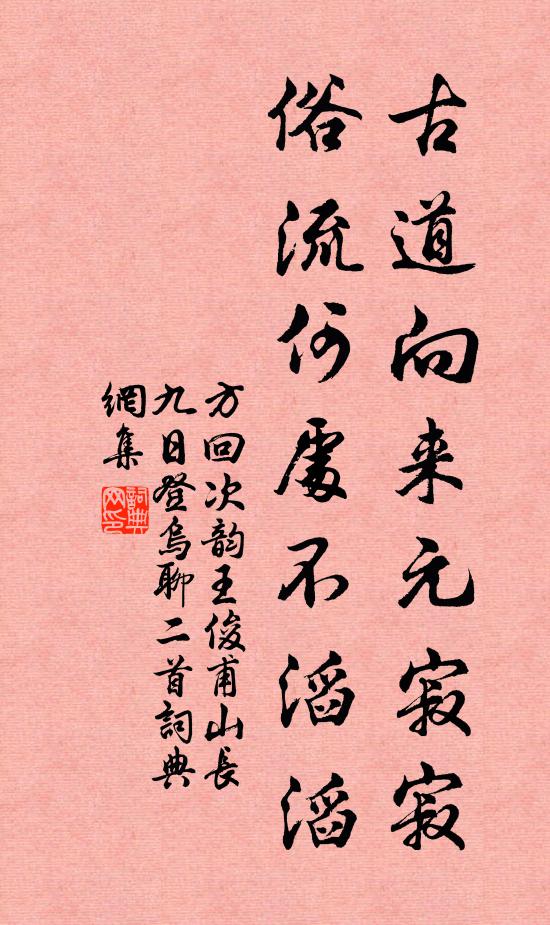 古道向来元寂寂
俗流何處不滔滔
方回次韵王俊甫山長
九日登烏聊二首詞典
網集
詞典
网印